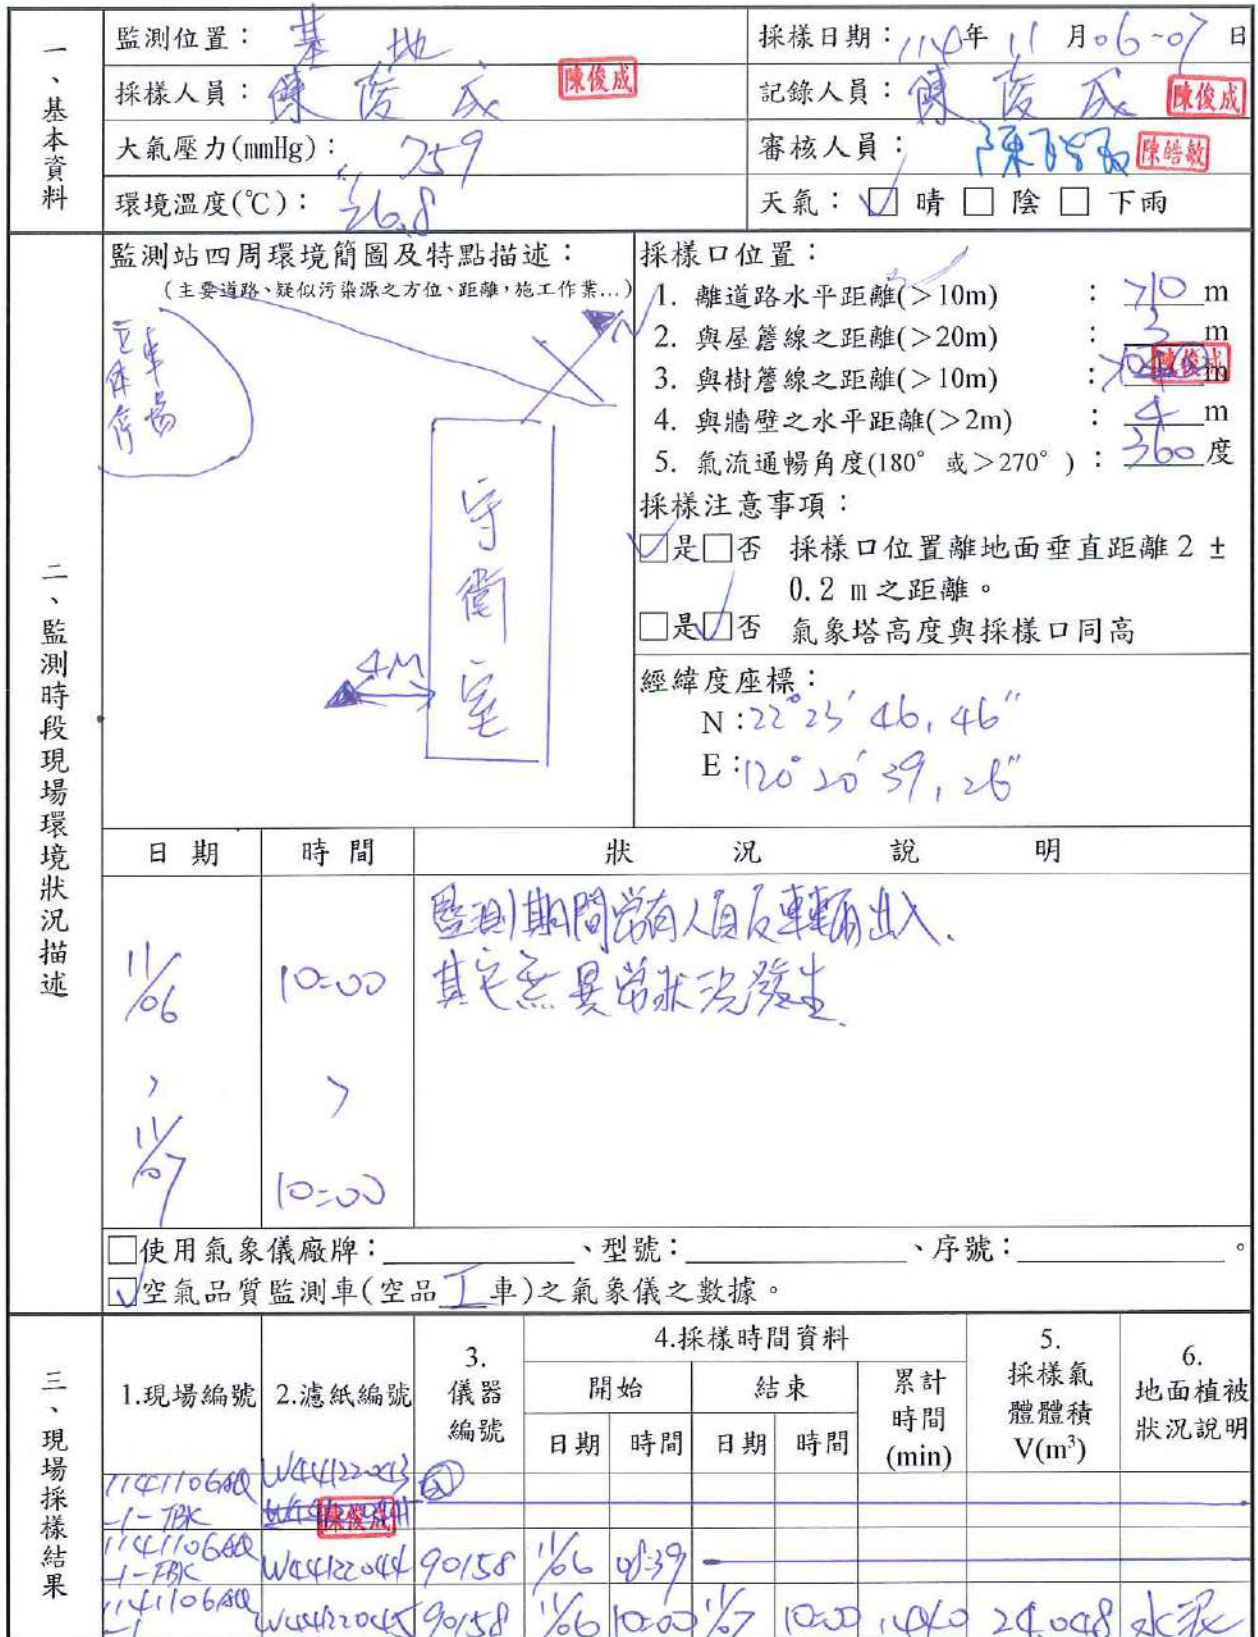 一、基本資料
監測位置：基地
採樣日期：114年11月06~07日
採樣人員：陳俊成 陳俊成
記錄人員：陳俊成 陳俊成
大氣壓力(mmHg)：759
審核人員：陳皓敏 陳皓敏
環境溫度(℃)：26.8
天氣：☑晴□陰□下雨
二、監測時段現場環境狀況描述
監測站四周環境簡圖及特點描述：
(主要道路、疑似污染源之方位、距離，施工作業...)
N
停車場
守衛室
4M
採樣口位置：
1. 離道路水平距離(＞10m)：>10m
2. 與屋簷線之距離(＞20m)：3m
3. 與樹簷線之距離(＞10m)：陳俊成 m
4. 與牆壁之水平距離(＞2m)：4m
5. 氣流通暢角度(180°或＞270°)：360度
採樣注意事項：
☑是□否 採樣口位置離地面垂直距離2 ±
0.2 m之距離。
□是☑否 氣象塔高度與採樣口同高
經緯度座標：
N：22°23'46.46"
E：120°20'39.26"
日期 時間 狀況說明
11/06 10:00 監測期間常有人員及車輛出入、
其它無異常狀況發生.
~ ~
11/07 10:00
□使用氣象儀廠牌：、型號：、序號：。
☑空氣品質監測車(空品工車)之氣象儀之數據。
三、現場採樣結果
1.現場編號 2.濾紙編號 3.儀器編號 4.採樣時間資料 5.採樣氣體體積V(m³) 6.地面植被狀況說明
開始 結束 累計時間(min)
日期 時間 日期 時間
1141106AQ-1-TBK W44122043 陳俊成
1141106AQ-1-FBK W44122044 90158 11/06 08:39
1141106AQ-1 W44122045 90158 11/06 10:00 11/7 10:00 1440 24.048 水泥